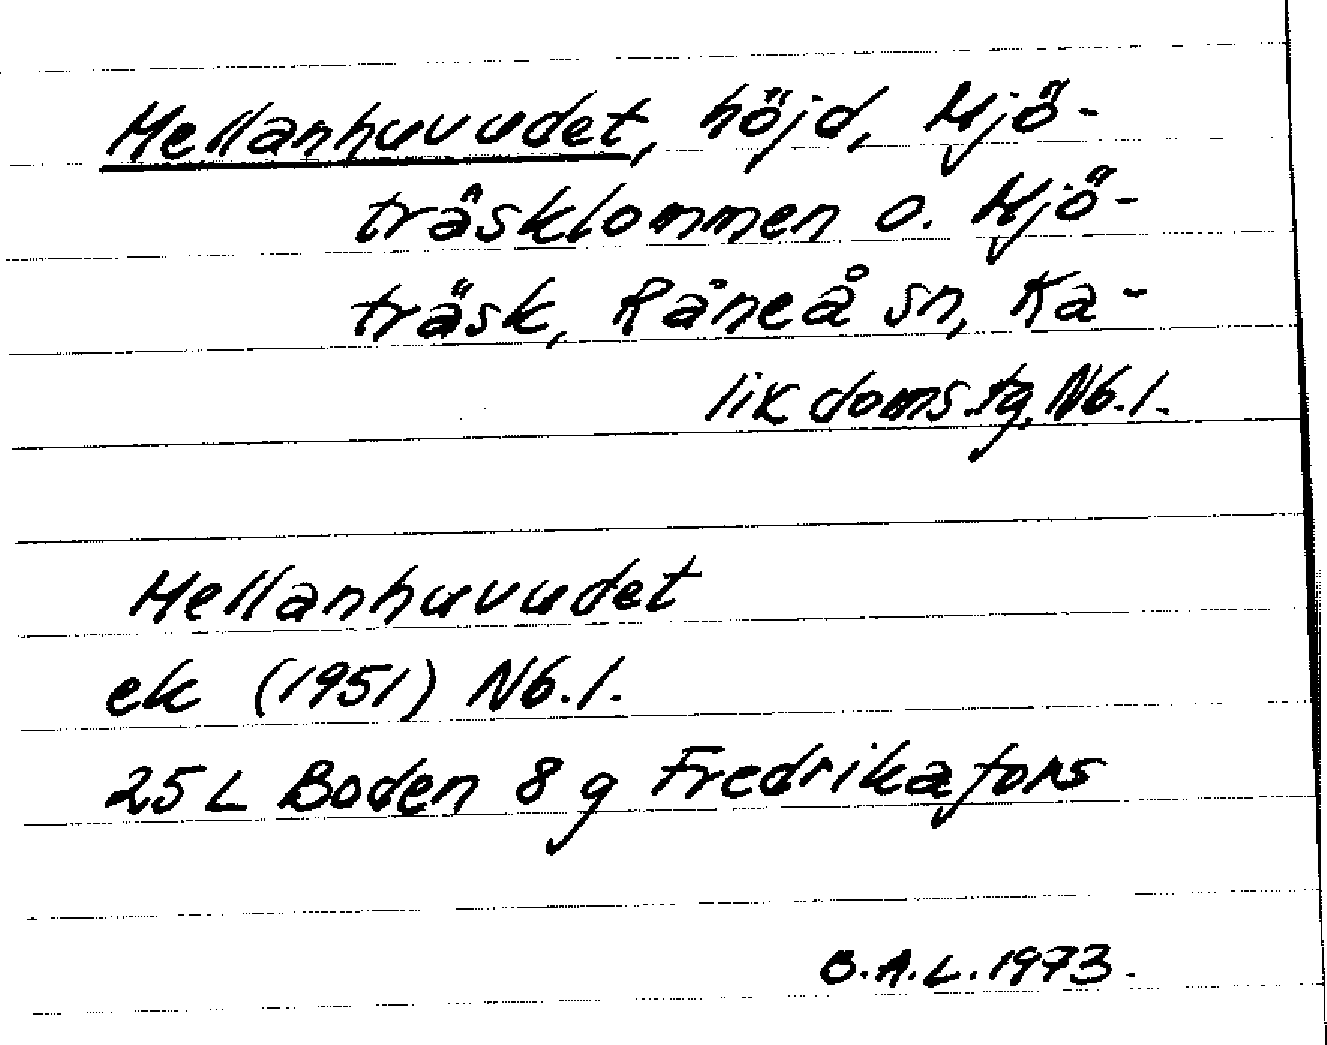 Mellanhuvudet, höjd, Mjö-
träsklommen o. Mjö-
träsk, Råneå sn, Ka-
lix doms.tg, Nb.l.
Mellanhuvudet
ek (1951) Nb.l.
25 L Boden 8 g Fredrikafors
O.A.L. 1973.